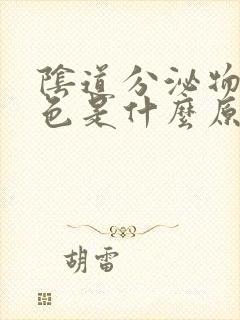 陰道分泌物
色是什麼原
胡雷